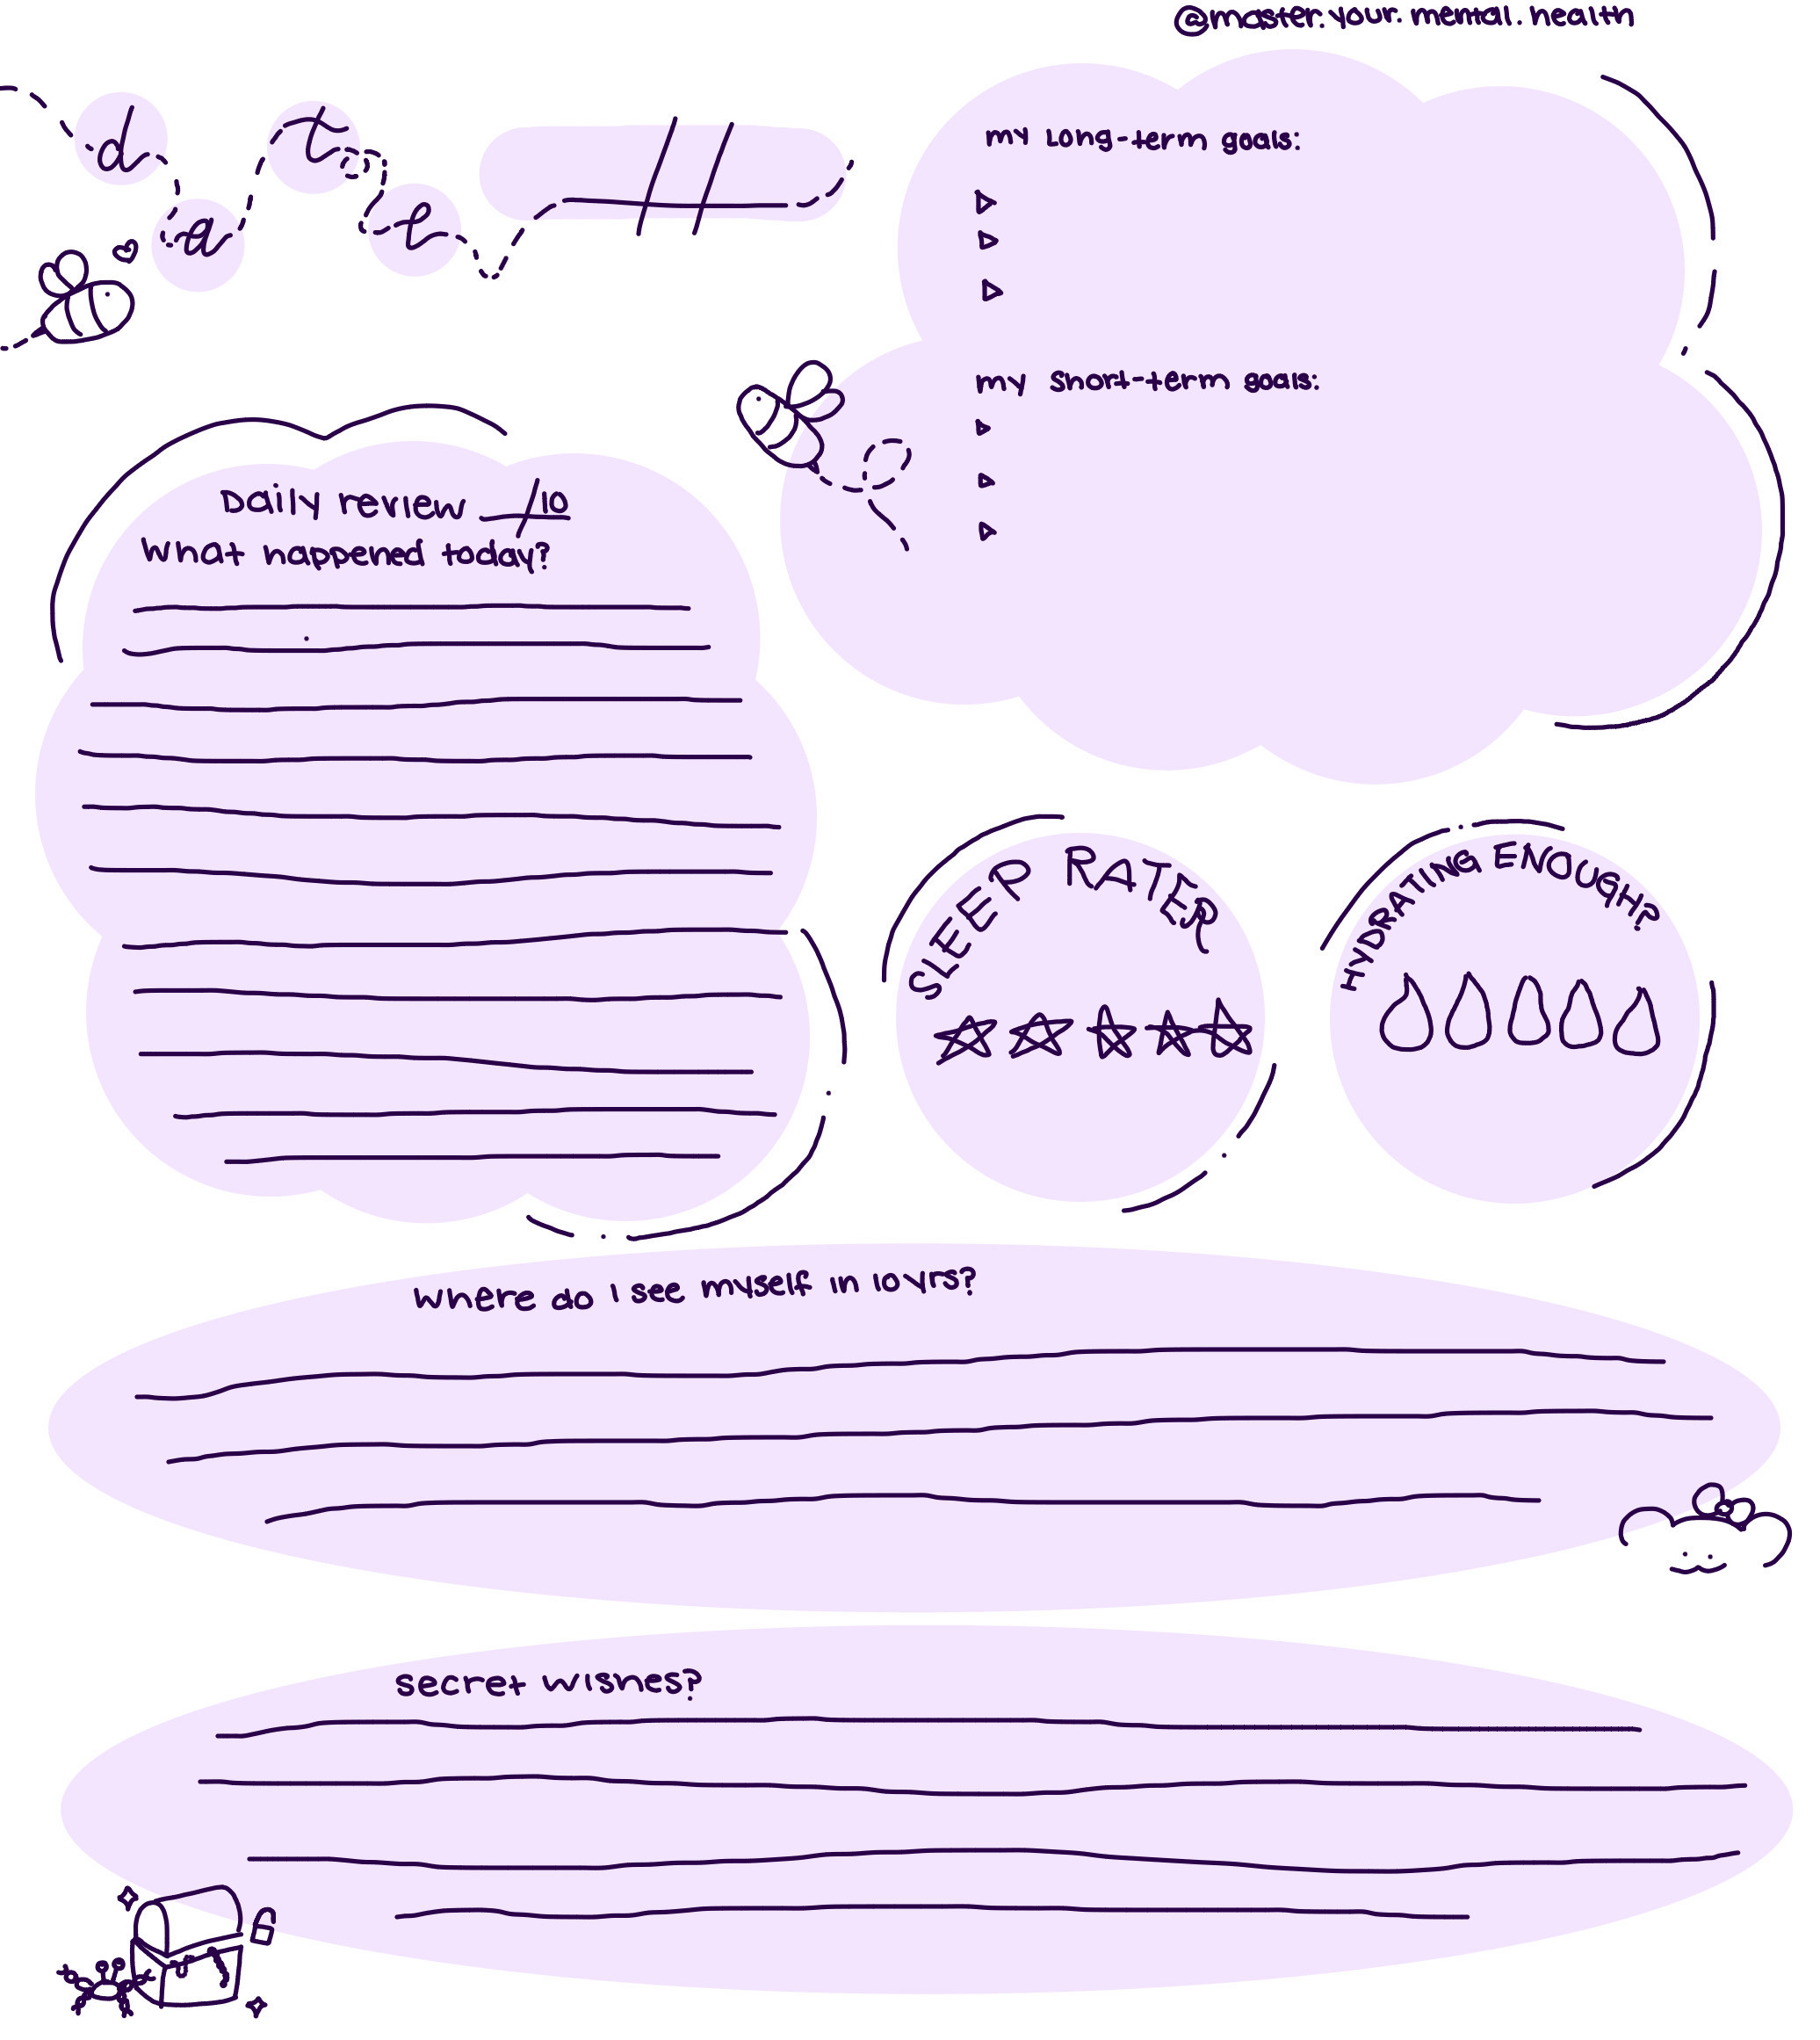 @master.your.mental.health
date //
my long-term goals:
my short-term goals:
Daily review /10
What happened today?
SLEEP RATER
HYDRATING ENOUGH?
Where do I see myself in 10 yrs?
secret wishes?